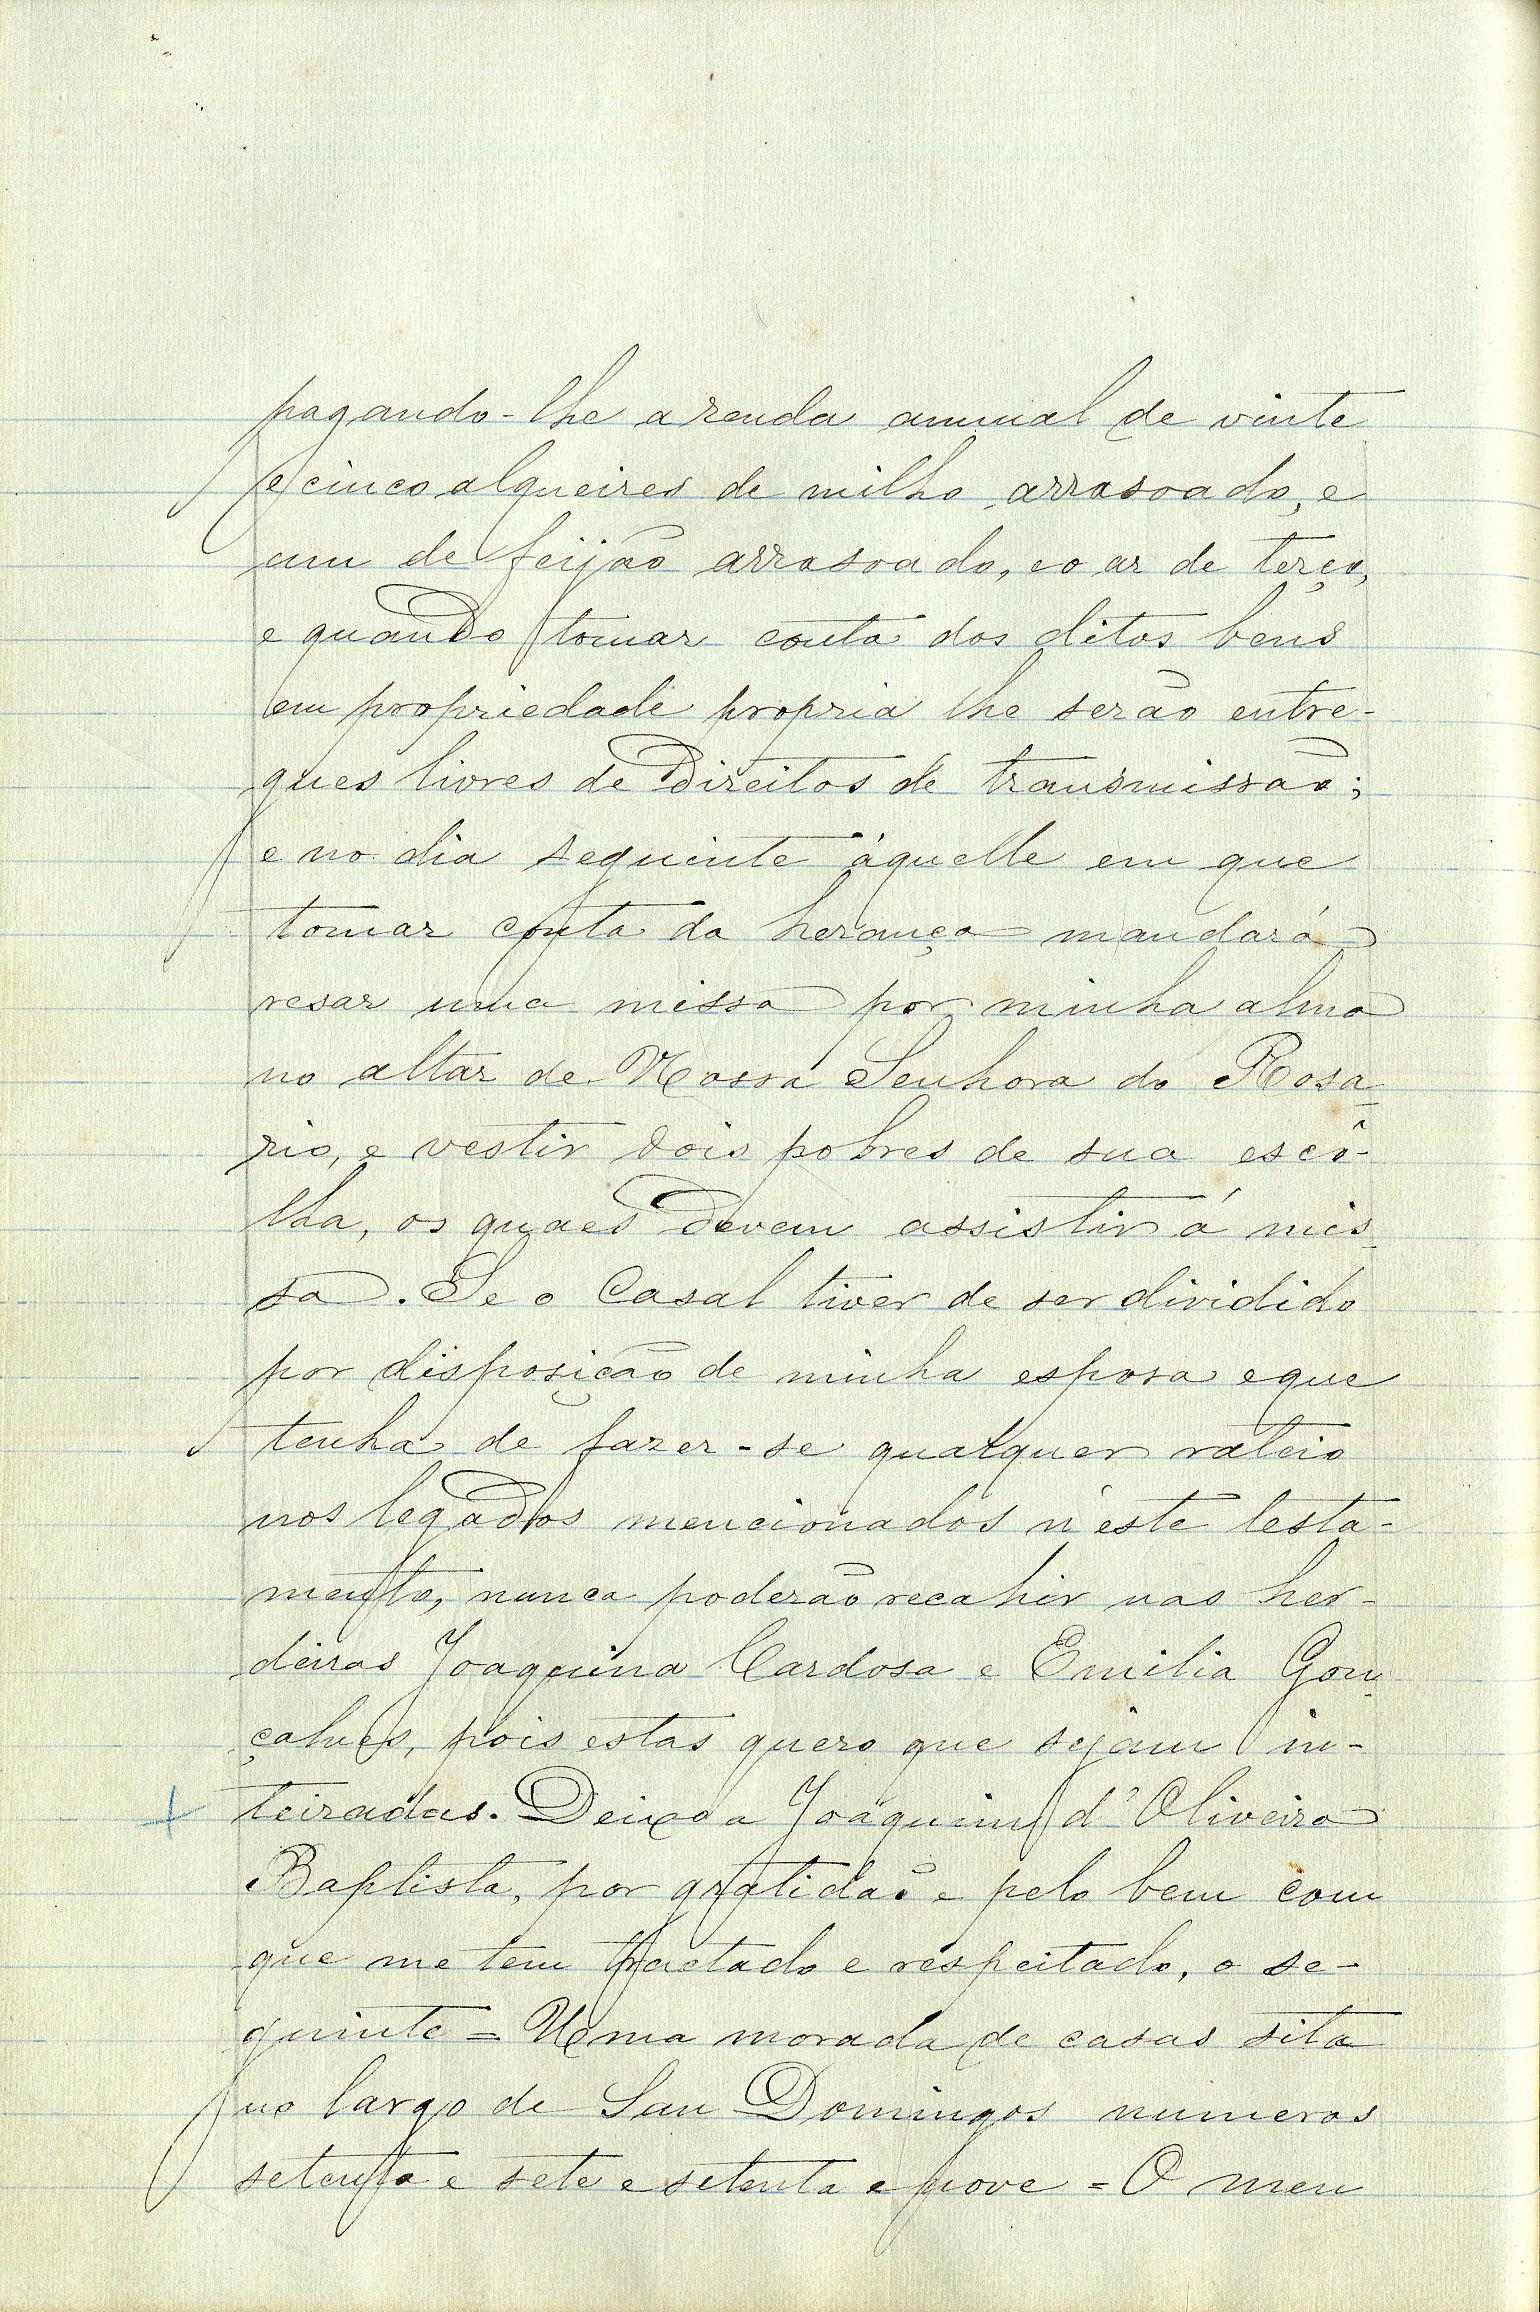 pagando-lhe a renda annual de vinte
e cinco alqueires de milho arrasoado, e
um de feijão arrasoado, e o ar de terço,
e quando tomar conta dos ditos bens
em propriedade propria lhe serão entre-
gues livres de direitos de transmissão;
e no dia seguinte áquelle em que
tomar conta da herança mandará
resar uma missa por minha alma
no altar de Nossa Senhora do Rosa-
rio, e vestir dois pobres de sua escô-
lha, os quaes devem assistir á mis-
sa. Se o Casal tiver de ser dividido
por disposição de minha esposa e que
tenha de fazer-se qualquer rateio
nos legados mencionados n'este testa-
mento, nunca poderão recahir nas her-
deiras Joaquina Cardosa e Emilia Gon-
çalves, pois estas quero que sejam in-
teiradas. Deixo a Joaquim d'Oliveira
Baptista, por gratidão e pelo bem com
que me tem tractado e respeitado, o se-
guinte = Uma morada de casas sita
no largo de San Domingos numeros
setenta e sete e setenta e nove = O meu